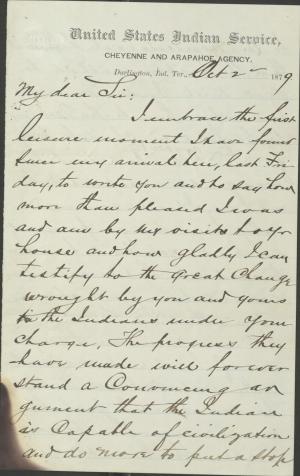 United States Indian Service,
CHEYENNE AND ARAPAHOE AGENCY,
Darlington, Ind. Ter., Oct 2 1879
My dear Sir:
I embrace the first
leisure moment I have found
since my arrival here, last Fri
day, to write you and to say how
more than pleased I was
and am by my visit to yr
house and how gladly I can
testify to the great change
wrought by you and yours
in the Indians under your
charge. The progress they
have made will forever
stand a convincing ar
gument that the Indian
is capable of civilization
and do more to put a stop